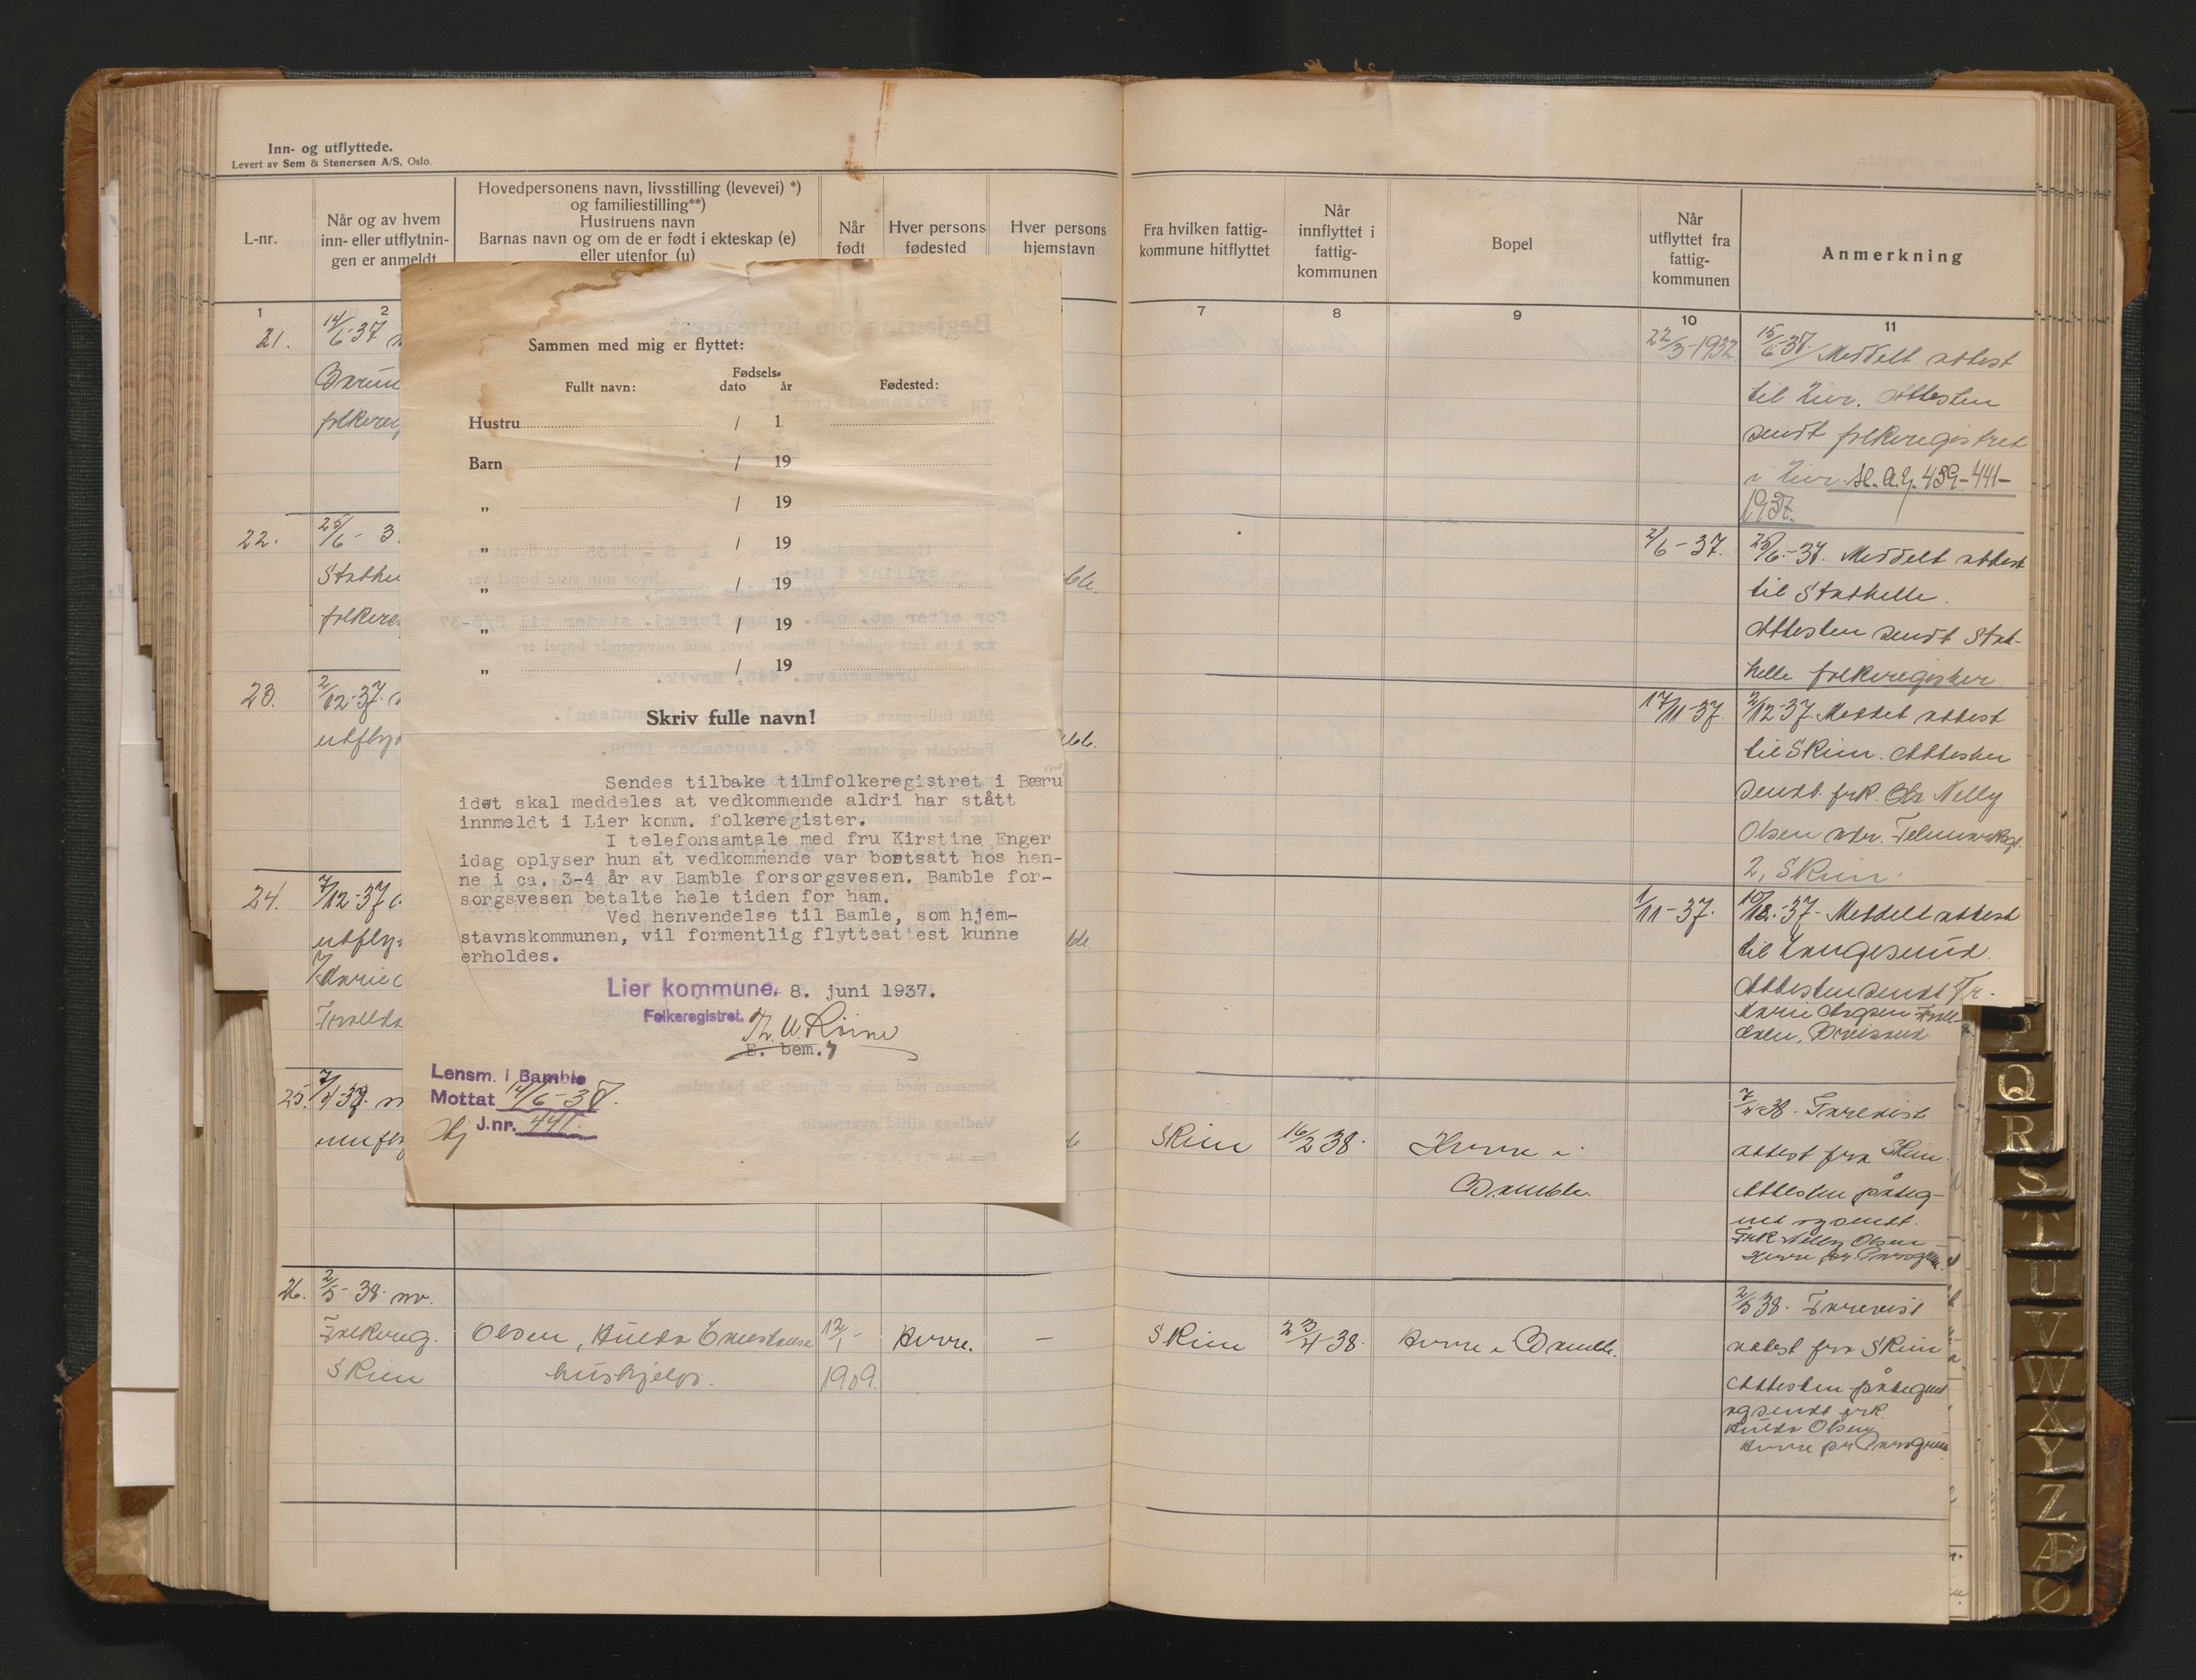 Inn- og utflyttede.
Levert av Sem & Stenersen A/S, Oslo.
L-nr.
Når og av hvem
inn- eller utflytnin-
gen er anmeldt
Hovedpersonens navn, livsstilling (levevei) *)
og familiestilling**)
Hustruens navn
Barnas navn og om de er født i ekteskap (e)
eller utenfor (u)
Når
født
Hver persons
fødested
Hver persons
hjemstavn
1
2
21.
14/6-37
folkereg
22.
25/6- 3
folkere
23.
2/12-37.
utfly
24.
7/12-37
utfly
25.
26. 2/5-38.
Folkereg. Olsen, Hulda Constanse 12/1- Herre. —
Skien hushjelp. 1909.
Sammen med mig er flyttet:
Fullt navn:
Fødsels-
dato år
Fødested:
Hustru / 1
Barn / 19
„ / 19
„ / 19
„ / 19
„ / 19
„ / 19
Skriv fulle navn!
Sendes tilbake tilmfolkeregistret i Bæru
idet skal meddeles at vedkommende aldri har stått
innmeldt i Lier komm. folkeregister.
I telefonsamtale med fru Kirstine Enger
idag oplyser hun at vedkommende var bortsatt hos hen-
ne i ca. 3-4 år av Bamble forsorgsvesen. Bamble for-
sorgsvesen betalte hele tiden for ham.
Ved henvendelse til Bamle, som hjem-
stavnskommunen, vil formentlig flytteattest kunne
erholdes.
Lier kommune. 8. juni 1937.
Folkeregistret.
E. bem.
Lensm. i Bamble
Mottat 14/6-37.
J.nr. 441.
Fra hvilken fattig-
kommune hitflyttet
Når
innflyttet i
fattig-
kommunen
Bopel
Når
utflyttet fra
fattig-
kommunen
Anmerkning
7
8
9
10
11
22/3-1932
15/6-37. Meddelt attest
til Lier. Attesten
sendt folkeregistret
i Lier. 439-441-
1937.
2/6-37.
25/6-37. Meddelt attest
til Stathelle.
Attesten sendt Stat-
helle folkeregister.
17/11-37.
2/12-37. Meddelt attest
til Skien. Attesten
sendt frk. Nelly
Olsen adr. Telemarksgt.
2, Skien.
1/11-37.
10/12-37. Meddelt attest
til Langesund.
Attesten sendt Fr.
Skien 16/2 38. Herre i
Bamble.
7/4-38. Forevist
attest fra Skien.
Attesten påteg-
net og sendt.
Frk Nelly Olsen
Herre pr. Porsgrunn.
Skien 23/4-38. Herre i Bamble.
2/5 38. Forevist
attest fra Skien
Attesten påtegnet
og sendt frk.
Hulda Olsen
Herre pr Porsgrunn
P
Q
R
S
T
U
V
W
X
Y
Z
Æ
Ø